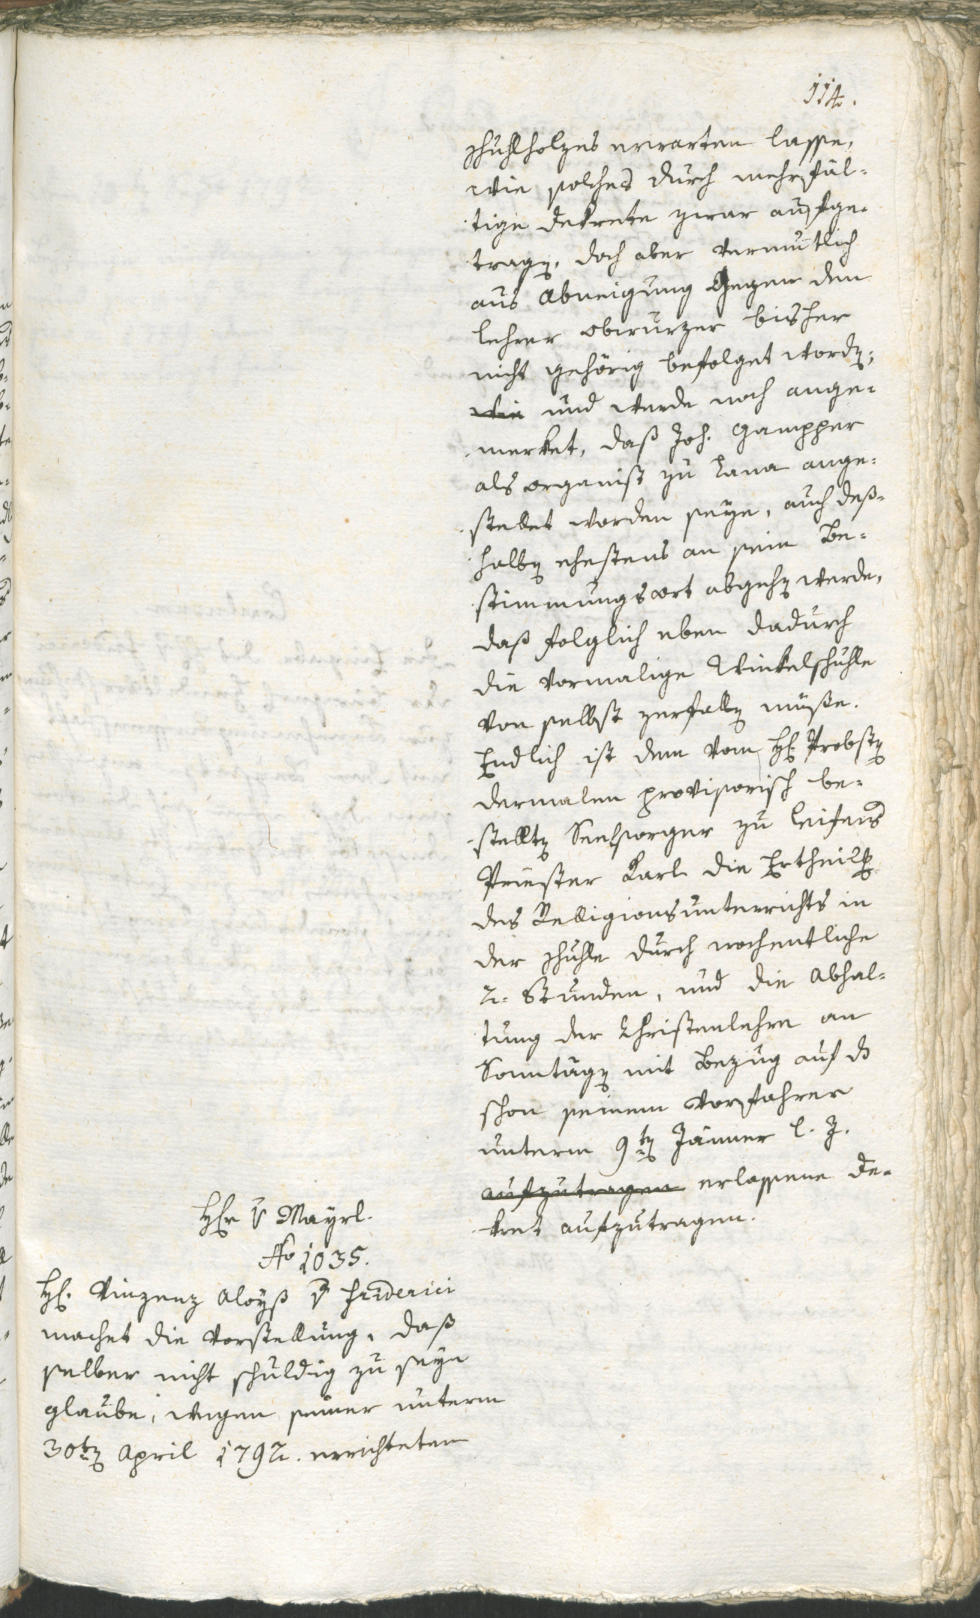 114.
schuhlholzes erwarten lasse,
wie solches durch mehrfäl-
tige Dekrete zwar aufge-
tragen, doch aber vermutlich
aus Abneigung Gegen den
lehrer obwurzer bisher
nicht gehörig befolget worden;
wie und werde noch ange-
merket, daß Joh. Gampper
als organist zu Lana ange-
stellet worden seye, auch deß-
halben ehestens an sein Be-
stimmungsort abgehen werde,
daß folglich eben dadurch
die vormalige Winkelschuhle
von selbst zerfallen müße.
Endlich ist dem vom H: Probsten
dermalen provisorisch be-
stellten Seelsorger zu Leifers
Priester Karl die Ertheilung
des Religionsunterrichts in
der schuhle durch wochentliche
2. Stunden, und die Abhal-
tung der Christenlehre an
Sonntägen mit Bezug auf ds
schon seinem vorfahrer
unterm 9ten Jänner l. J.
aufzutragen erlassene De-
kret aufzutragen.
Hr v Mayrl.
No 1035.
H: Vinzenz Aloyß v Friderici
machet die Vorstellung, daß
selber nicht schuldig zu seyn
glaube, wegen seiner unterm
30ten April 1792. errichteten